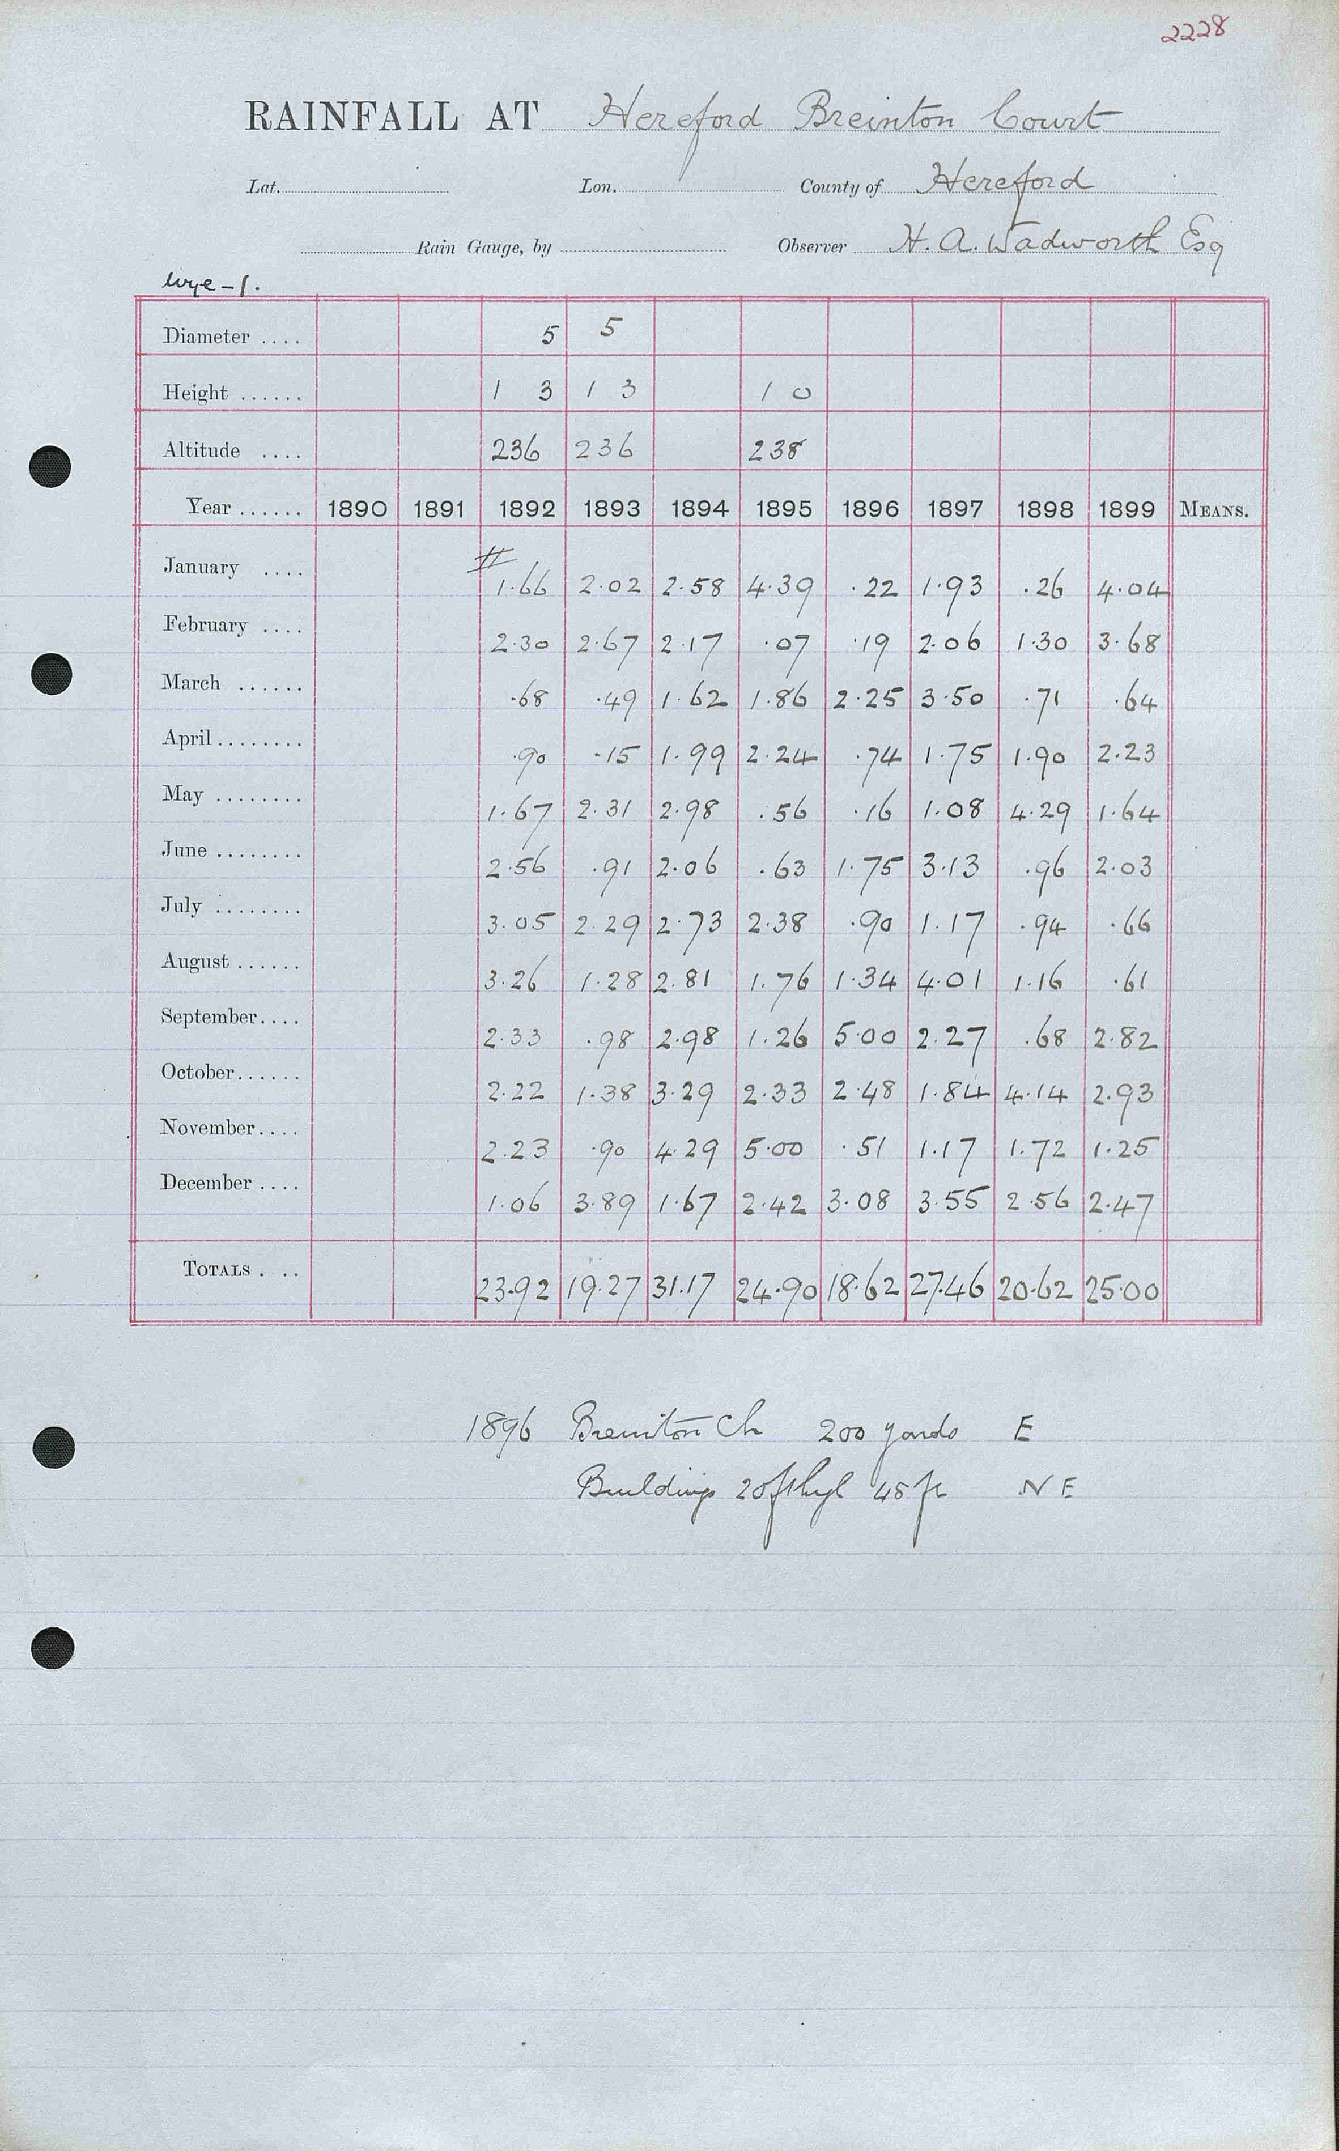 2228
RAINFALL AT Hereford Breinton Court
Lat. Lon. County of Hereford
Rain Gauge, by Observer H. A. Wadworth Esq
Wye - 1.
Diameter .... 5 5
Height ...... 1 3 1 3 1 0
Altitude .... 236 236 238
Year ...... 1890 1891 1892 1893 1894 1895 1896 1897 1898 1899 MEANS.
January .... # 1.66 2.02 2.58 4.39 .22 1.93 .26 4.04
February .... 2.30 2.67 2.17 .07 .19 2.06 1.30 3.68
March ...... .68 .49 1.62 1.86 2.25 3.50 .71 .64
April ........ .90 .15 1.99 2.24 .74 1.75 1.90 2.23
May ........ 1.67 2.31 2.98 .56 .16 1.08 4.29 1.64
June ........ 2.56 .91 2.06 .63 1.75 3.13 .96 2.03
July ........ 3.05 2.29 2.73 2.38 .90 1.17 .94 .66
August ...... 3.26 1.28 2.81 1.76 1.34 4.01 1.16 .61
September.... 2.33 .98 2.98 1.26 5.00 2.27 .68 2.82
October...... 2.22 1.38 3.29 2.33 2.48 1.84 4.14 2.93
November.... 2.23 .90 4.29 5.00 .51 1.17 1.72 1.25
December .... 1.06 3.89 1.67 2.42 3.08 3.55 2.56 2.47
TOTALS .... 23.92 19.27 31.17 24.90 18.62 27.46 20.62 25.00
1896 Breinton Ch 200 yards E
Buildings 20ft 48 ft NE